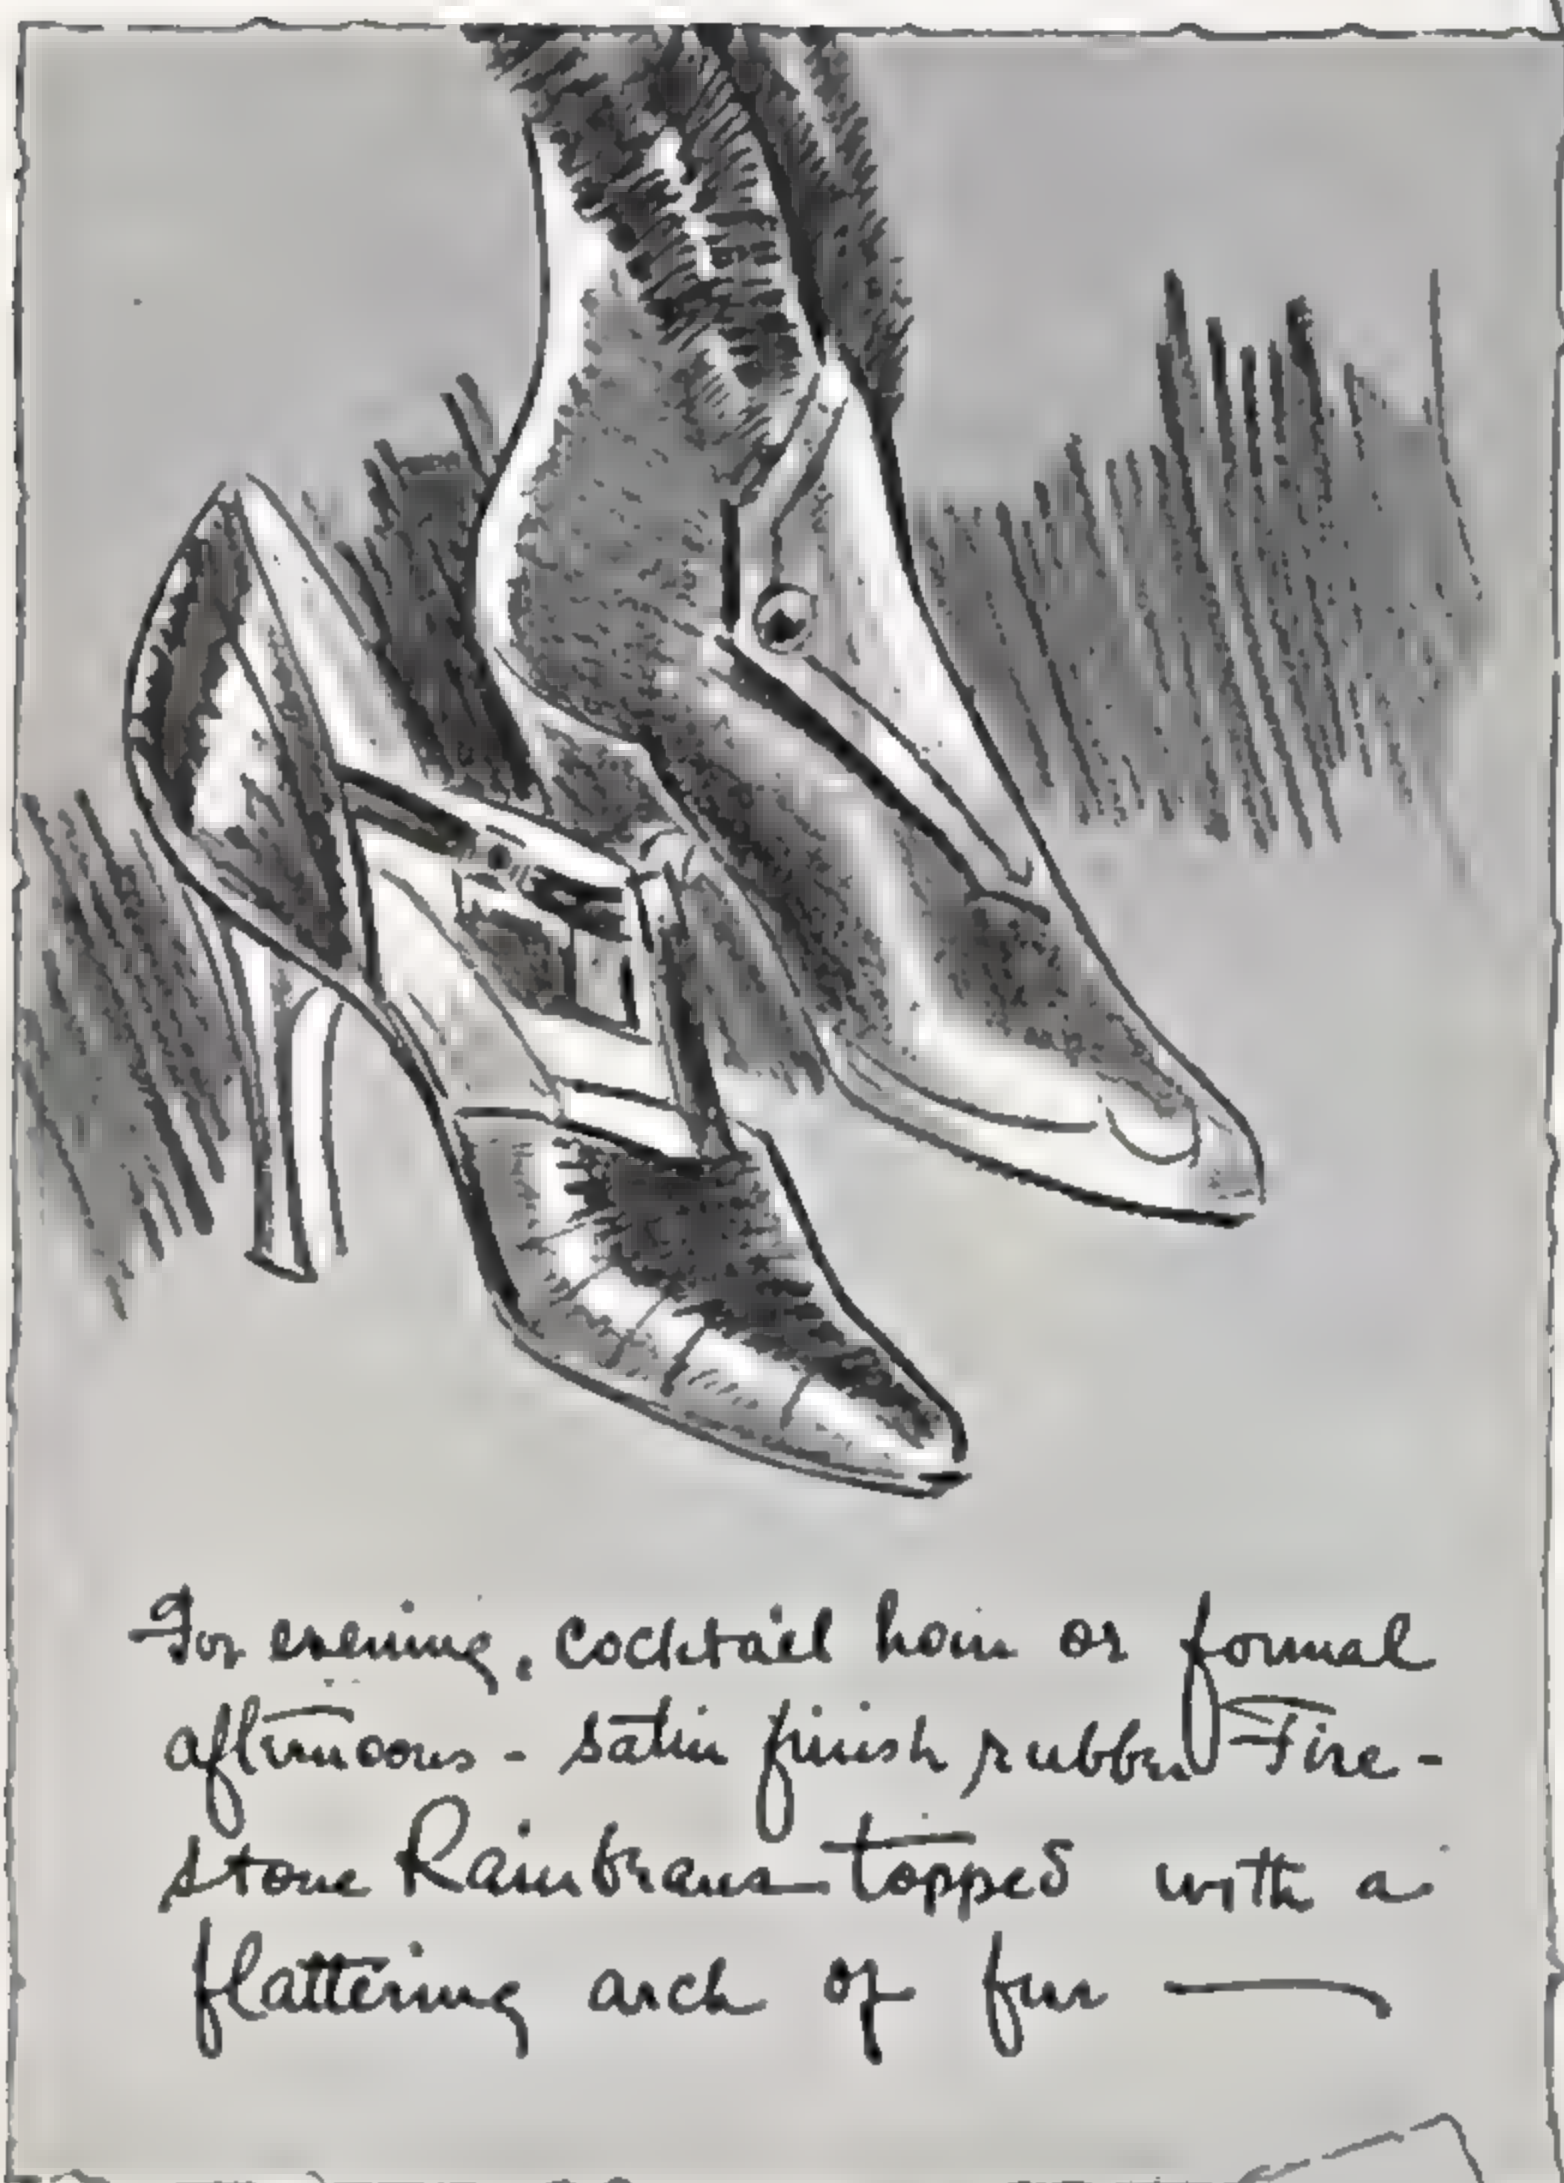 For evening, cocktail hour or formal
afternoons - satin finish rubber Fire-
stone Rainbeaus topped with a
flattering arch of fur —